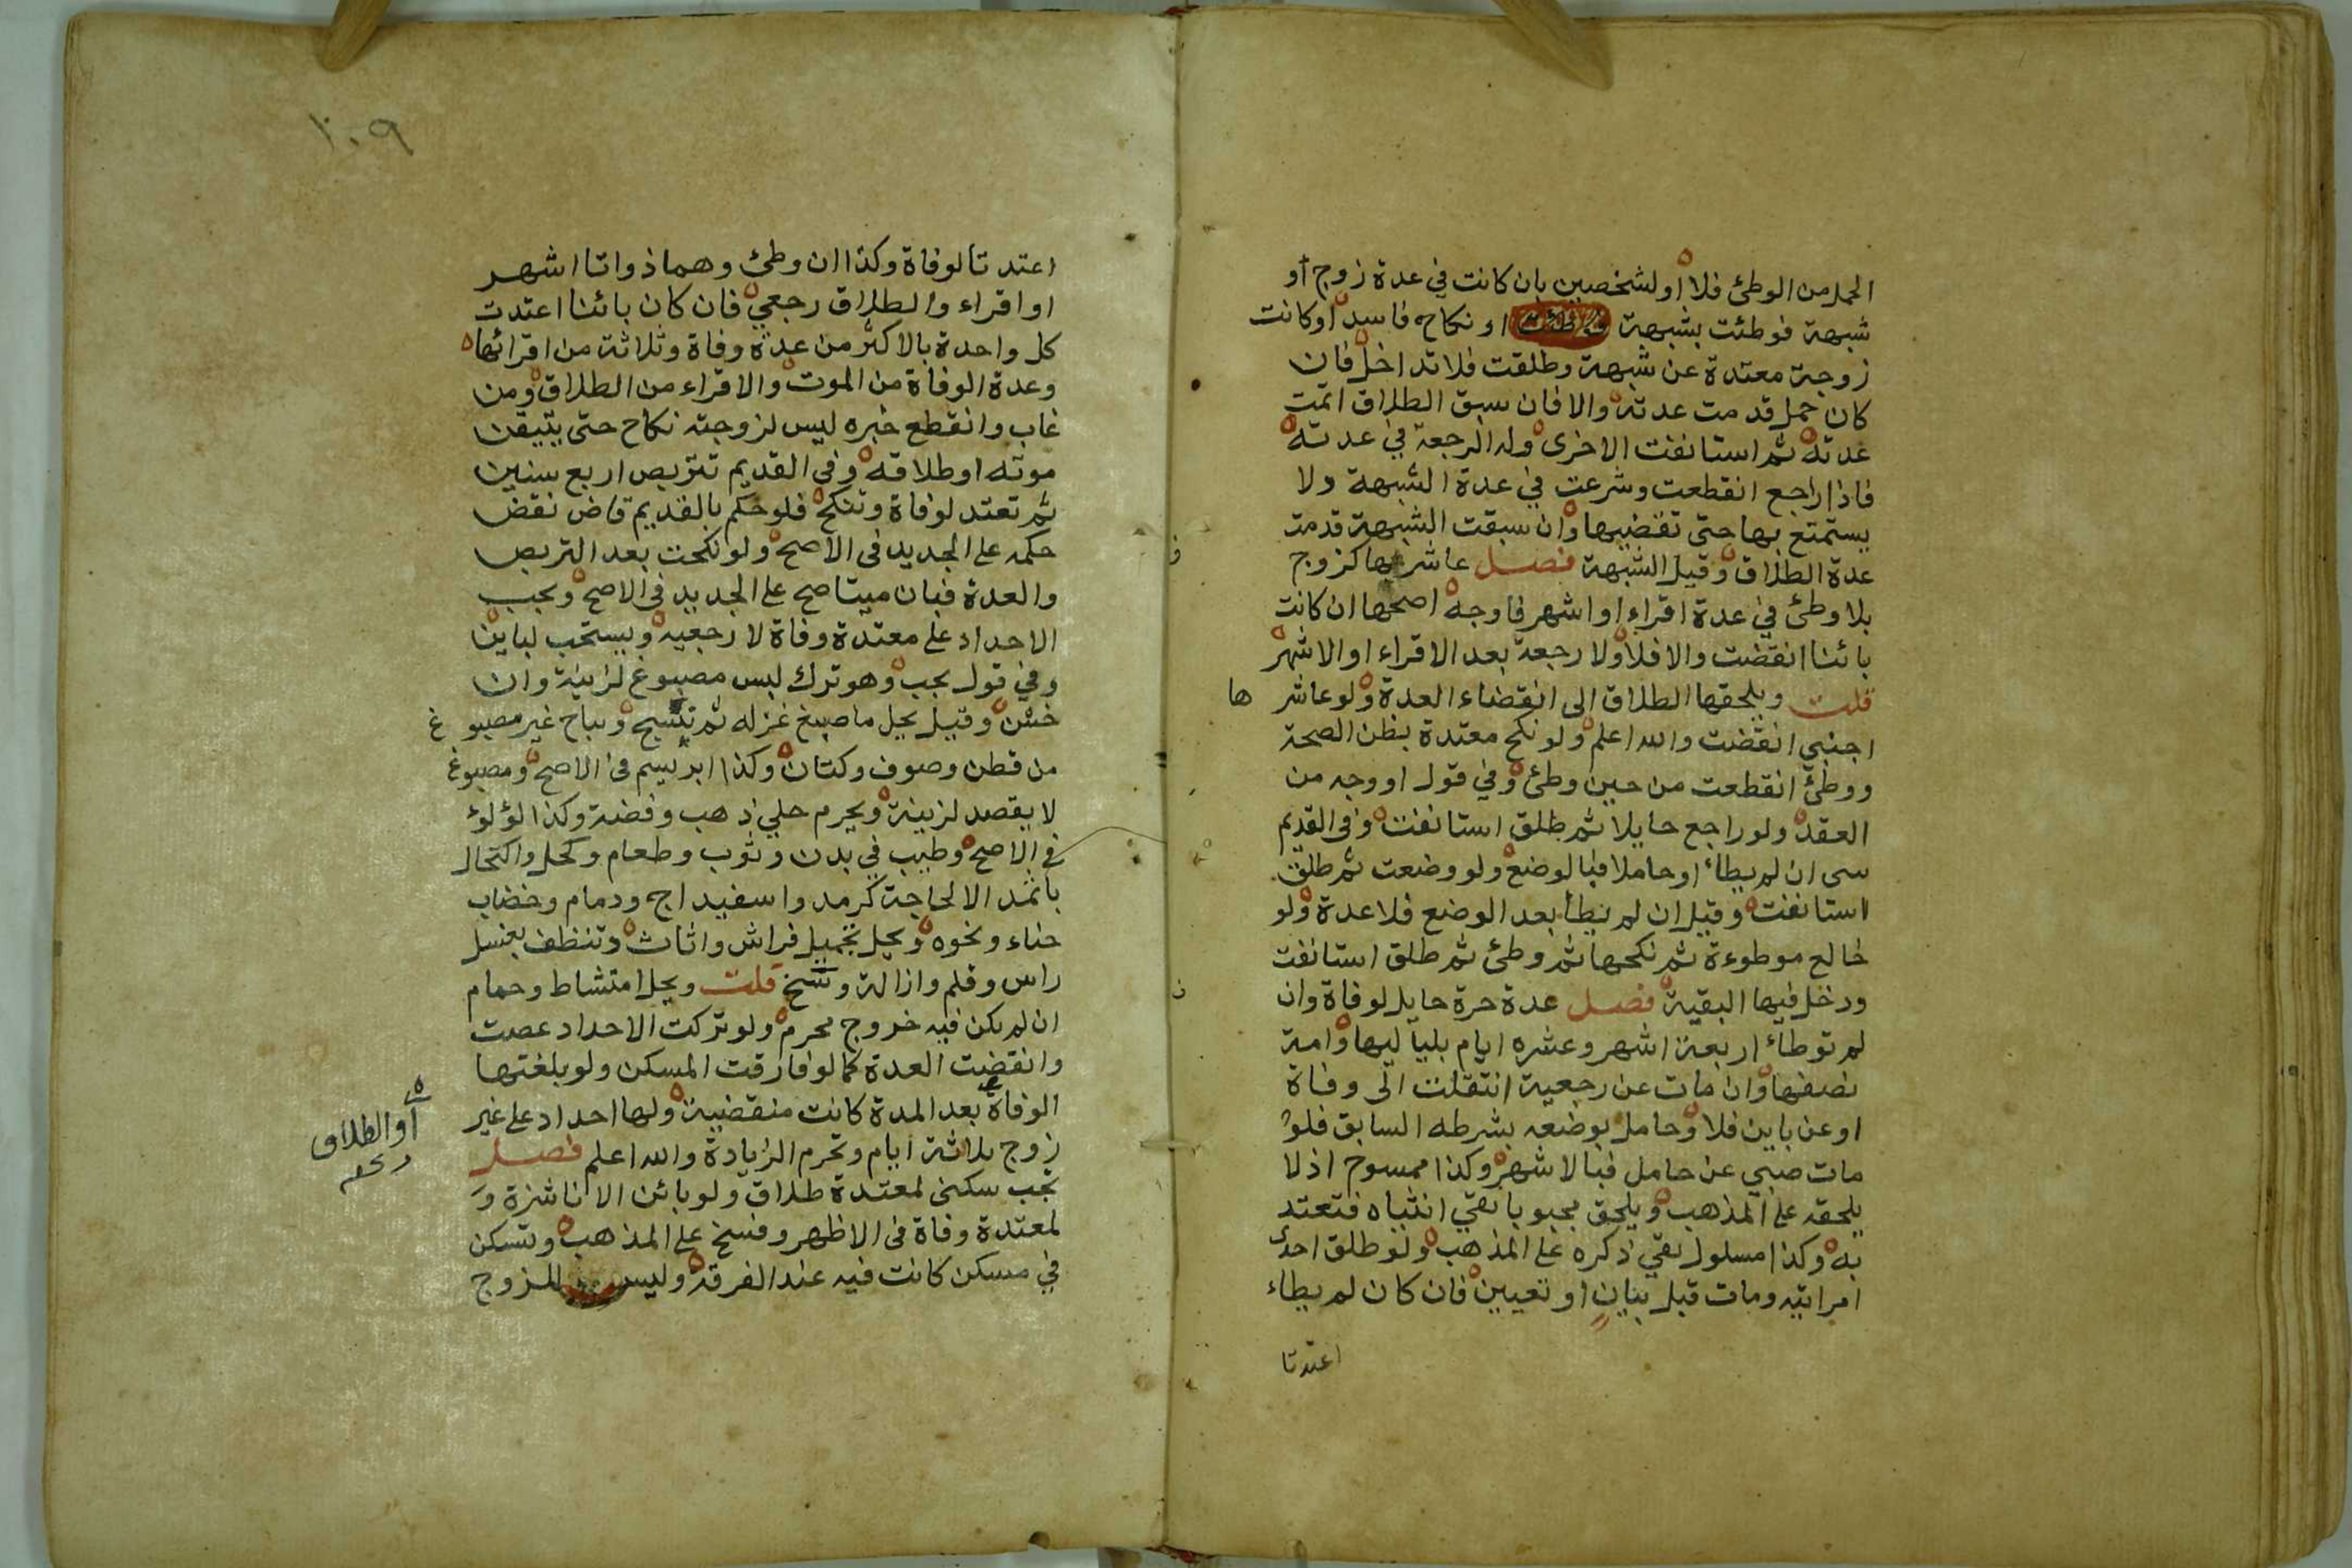 الحمل من الوطئ فلا او لشخصين بان كانت في عدة زوج او
شبهة فوطئت بشبهة او نكاح فاسد او كانت
زوجة معتدة عن شبهة وطلقت فلا تداخل فان
كان حمل قدمت عدته والا فان سبق الطلاق اتمت
عدته ثم استانفت الاخرى وله الرجعة في عدته
فاذا راجع انقطعت وشرعت في عدة الشبهة ولا
يستمتع بها حتى تقضيها وان سبقت الشبهة قدمت
عدة الطلاق وقيل الشبهة فصل عاشرها كزوج
بلا وطئ في عدة اقراء او اشهر فاوجه اصحها ان كانت
بائنا انقضت والا فلا ولا رجعة بعد الاقراء او الاشهر
قلت ويلحقها الطلاق الى انقضاء العدة ولو عاشر ها
اجنبي انقضت والله اعلم ولو نكح معتدة بظن الصحة
ووطئ انقطعت من حين وطئ وفي قول او وجه من
العقد ولو راجع حايلا ثم طلق استانفت وفي القديم
سى ان لم يطاء او حاملا فبالوضع ولو وضعت ثم طلق
استانفت وقيل ان لم يطأ بعد الوضع فلا عدة ولو
خالع موطوءة ثم نكحها ثم وطئ ثم طلق استانفت
ودخل فيها البقية فصل عدة حرة حايل لوفاة وان
لم توطاء اربعة اشهر وعشره ايام بلياليها وامة
نصفها وان مات عن رجعية انتقلت الى وفاة
او عن باين فلا وحامل بوضعه بشرطه السابق فلو
مات صبي عن حامل فبالاشهر وكذا ممسوح اذ لا
يلحقه على المذهب ويلحق مجبوبا بقي انثياه فتعتد
به وكذا مسلول بقي ذكره على المذهب ولو طلق احدى
امراتيه ومات قبل بيان او تعيين فان كان لم يطاء
اعتدتا
١٠٩
اعتدتا لوفاة وكذا ان وطئ وهما ذواتا اشهر
او اقراء والطلاق رجعي فان كان بائنا اعتدت
كل واحدة بالاكثر من عدة وفاة وثلاثة من اقرائها
وعدة الوفاة من الموت والاقراء من الطلاق ومن
غاب وانقطع خبره ليس لزوجته نكاح حتى يتيقن
موته او طلاقه وفي القديم تتربص اربع سنين
ثم تعتد لوفاة وتنكح فلو حكم بالقديم قاض نقض
حكمه على الجديد في الاصح ولو نكحت بعد التربص
والعدة فبان ميتا صح على الجديد في الاصح ويجب
الاحداد على معتدة وفاة لا رجعية ويستحب لباين
وفي قول يجب وهو ترك لبس مصبوغ لزينة وان
خشن وقيل يحل ما صبغ غزله ثم نسج ويباح غير مصبو غ
من قطن وصوف وكتان وكذا ابريسم في الاصح ومصبوغ
لا يقصد لزينة ويحرم حلي ذهب وفضة وكذا لؤلوء
في الاصح وطيب في بدن وثوب وطعام وكحل واكتحال
باثمد الا لحاجة كرمد واسفيداج ودمام وخضاب
حناء ونحوه ويحل تجميل فراش واثاث وتنظف بغسل
راس وقلم وازالة وسخ قلت ويحل امتشاط وحمام
ان لم يكن فيه خروج محرم ولو تركت الاحداد عصت
وانقضت العدة كما لو فارقت المسكن ولو بلغتها
الوفاة بعد المدة كانت منقضية ولها احداد على غير
زوج ثلاثة ايام وتحرم الزيادة والله اعلم فصل
تجب سكنى لمعتدة طلاق ولو بائن الا ناشزة و
لمعتدة وفاة في الاظهر وفسخ على المذهب وتسكن
في مسكن كانت فيه عند الفرقة وليس للزوج
أو الطلاق